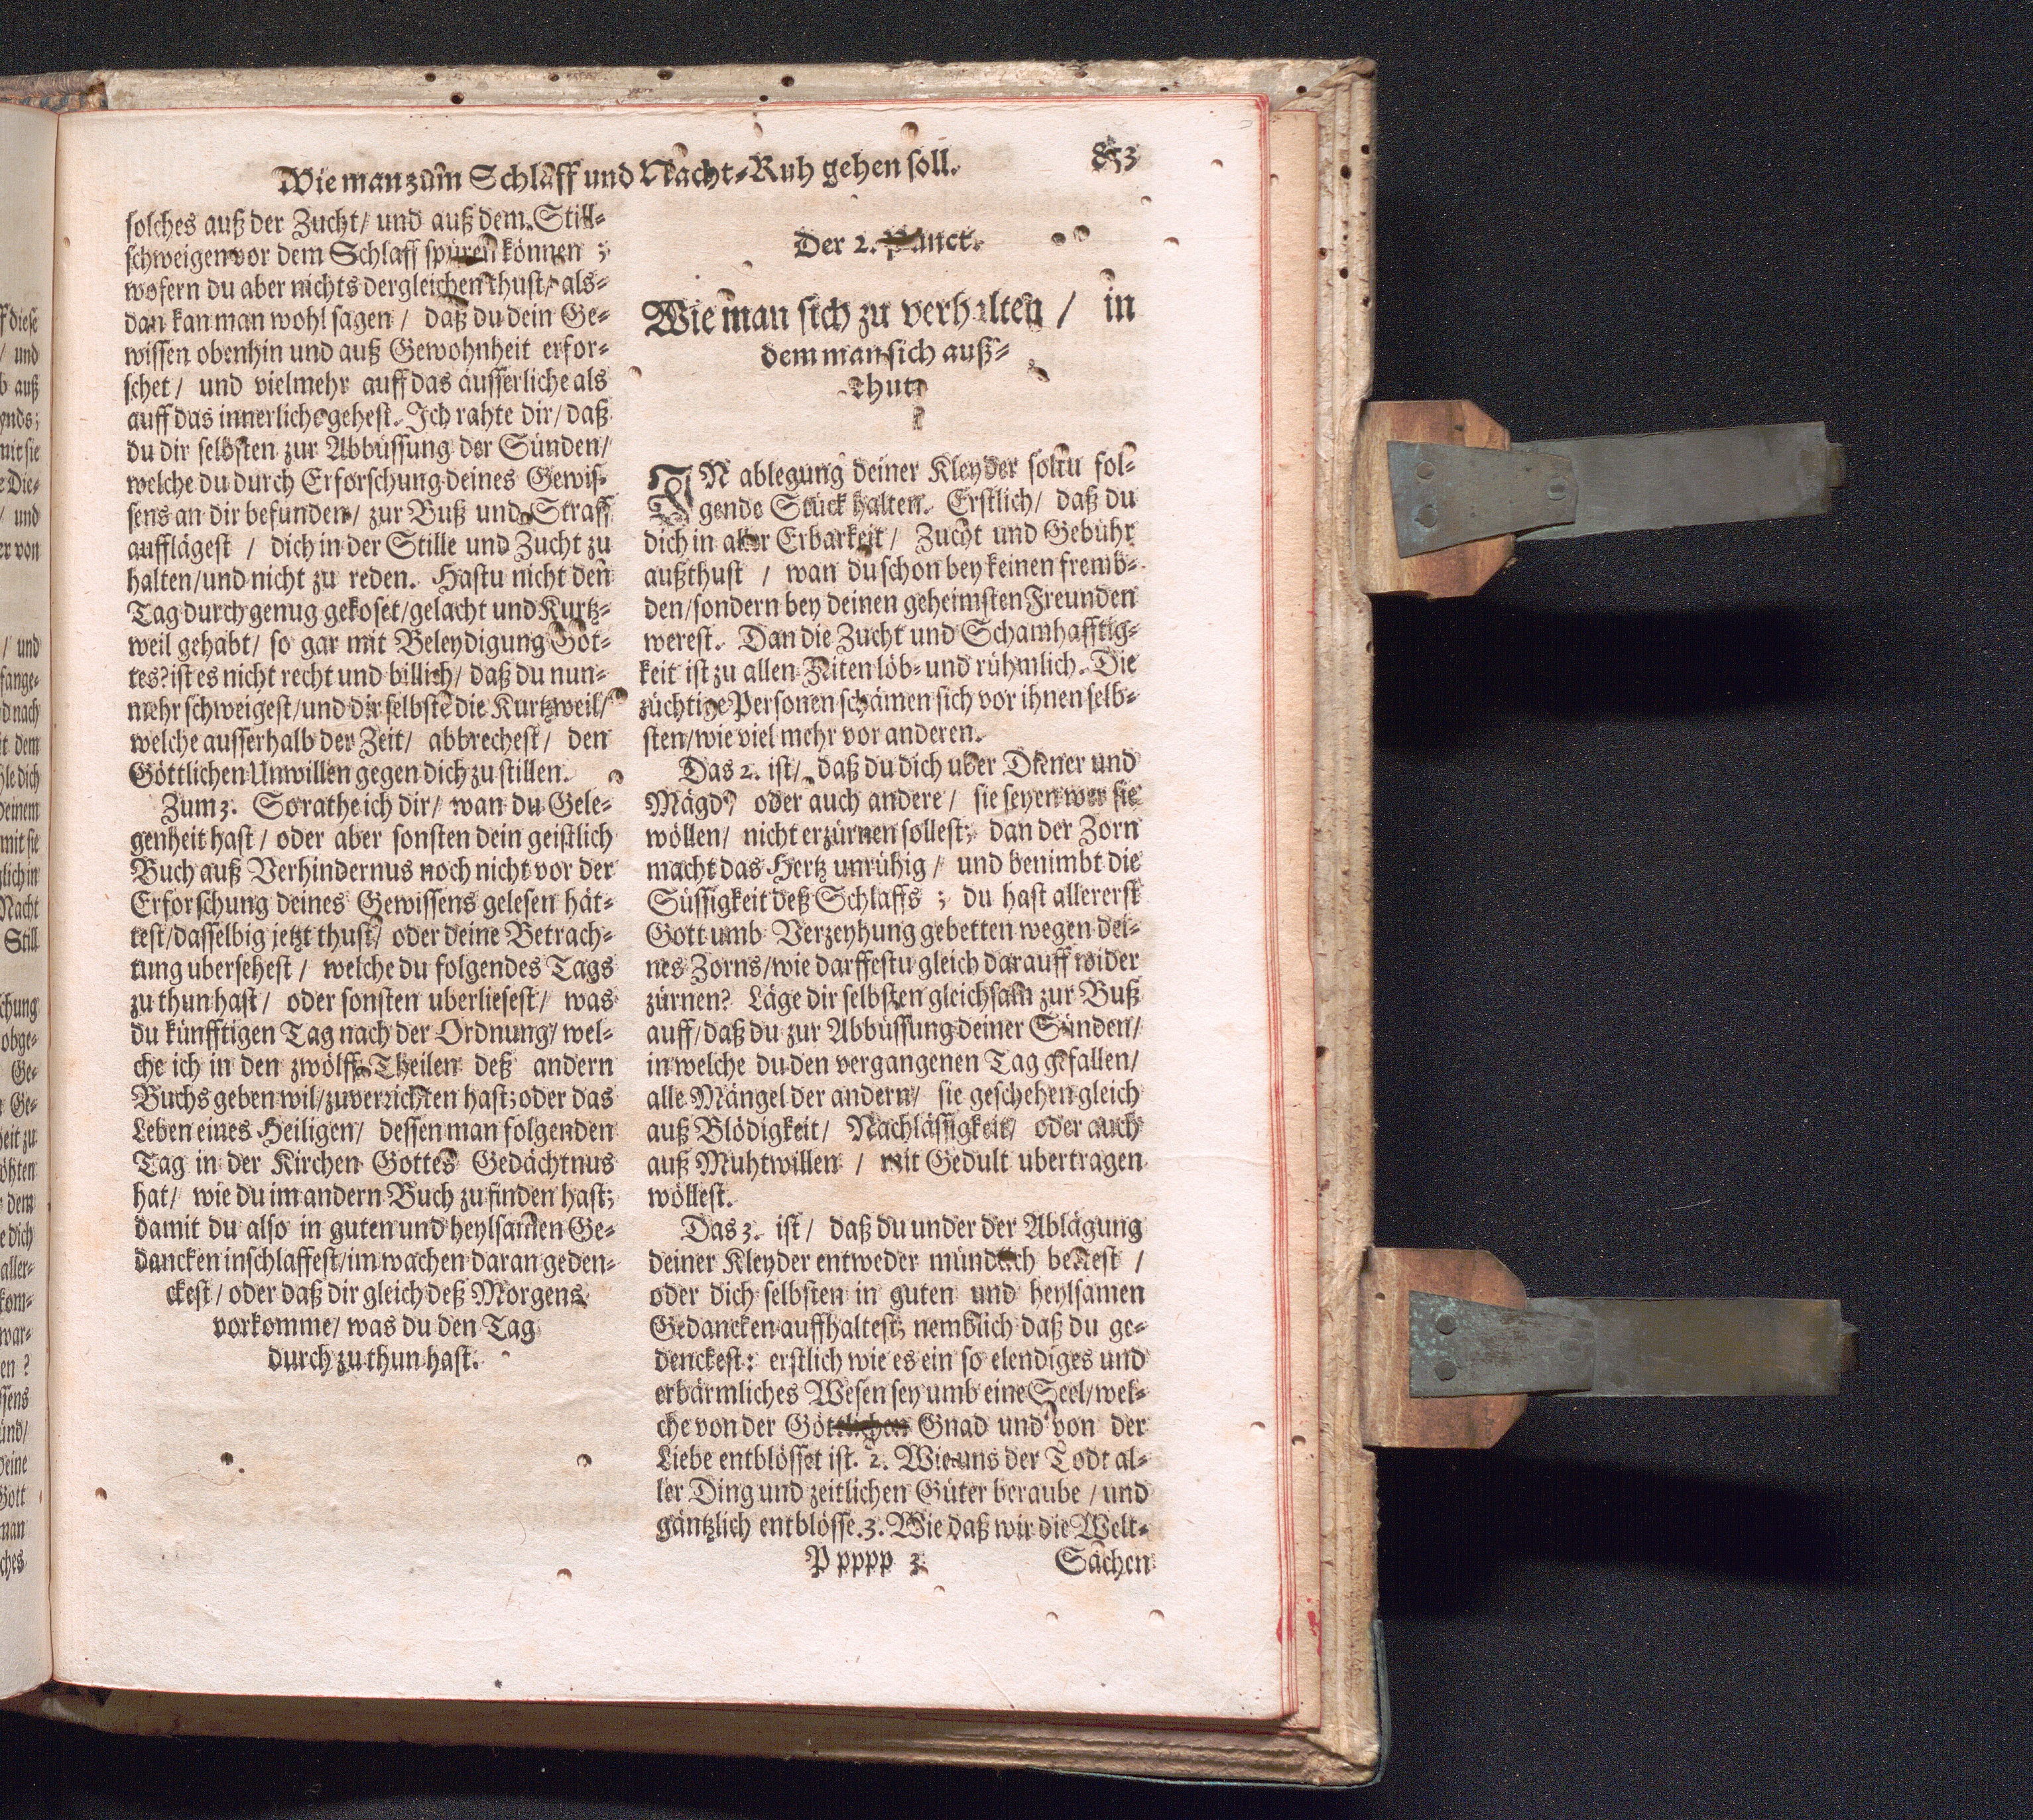 Wie man zum Schlaff und Nacht-Ruh gehen soll. 853
solches auß der Zucht/ und auß dem Still-
schweigen vor dem Schlaff spüren können;
wofern du aber nichts dergleichen thust/ als-
dan kan man wohl sagen/ daß du dein Ge-
wissen obenhin und auß Gewohnheit erfor-
schet/ und vielmehr auff das äusserliche als
auff das innerliche gehest. Ich rahte dir/ daß
du dir selbsten zur Abbüssung der Sünden/
welche du durch Erforschung deines Gewis-
sens an dir befunden/ zur Buß und Straff
aufflägest / dich in der Stille und Zucht zu
halten/ und nicht zu reden. Hastu nicht den
Tag durch genug gekoset/ gelacht und Kurtz-
weil gehabt/ so gar mit Beleydigung Got-
tes? ist es nicht recht und billich/ daß du nun-
mehr schweigest/ und dir selbstē die Kurtzweil/
welche ausserhalb der Zeit/ abbrechest/ den
Göttlichen Unwillen gegen dich zu stillen.
Zum 3. So rathe ich dir/ wan du Gele-
genheit hast/ oder aber sonsten dein geistlich
Buch auß Verhindernus noch nicht vor der
Erforschung deines Gewissens gelesen hät-
test/ dasselbig jetzt thust/ oder deine Betrach-
tung ubersehest / welche du folgendes Tags
zu thun hast/ oder sonsten uberliesest/ was
du künfftigen Tag nach der Ordnung/ wel-
che ich in den zwölff Theilen deß andern
Buchs geben wil/ zuverrichten hast; oder das
Leben eines Heiligen/ dessen man folgenden
Tag in der Kirchen Gottes Gedächtnus
hat/ wie du im andern Buch zu finden hast;
damit du also in guten und heylsamen Ge-
dancken inschlaffest/ im wachen daran geden-
ckest/ oder daß dir gleich deß Morgens
vorkomme/ was du den Tag
durch zu thun hast.
Der 2. Punct.
Wie man sich zu verhalten / in
dem man sich auß-
thut.
IN ablegung deiner Kleyder soltu fol-
gende Stück halten. Erstlich/ daß du
dich in aller Erbarkeit/ Zucht und Gebühr
außthust / wan du schon bey keinen fremb-
den/ sondern bey deinen geheimsten Freunden
werest. Dan die Zucht und Schamhafftig-
keit ist zu allen Zeiten löb- und rühmlich. Die
züchtige Personen schämen sich vor ihnen selb-
sten/ wie viel mehr vor anderen.
Das 2. ist/ daß du dich uber Diener und
Mägd/ oder auch andere/ sie seyen wer sie
wöllen/ nicht erzürnen sollest; dan der Zorn
macht das Hertz unrühig/ und benimbt die
Süssigkeit deß Schlaffs; du hast allererst
Gott umb Verzeyhung gebetten wegen dei-
nes Zorns/ wie darffestu gleich darauff wider
zürnen? Läge dir selbsten gleichsam zur Buß
auff/ daß du zur Abbüssung deiner Sünden/
in welche du den vergangenen Tag gefallen/
alle Mängel der andern/ sie geschehen gleich
auß Blödigkeit/ Nachlässigkeit/ oder auch
auß Muhtwillen / mit Gedult ubertragen
wöllest.
Das 3. ist/ daß du under der Ablägung
deiner Kleyder entweder mündlich bettest /
oder dich selbsten in guten und heylsamen
Gedancken auffhaltest; nemblich daß du ge-
denckest: erstlich wie es ein so elendiges und
erbärmliches Wesen sey umb eine Seel/ wel-
che von der Göttlichen Gnad und von der
Liebe entblösset ist. 2. Wie uns der Todt al-
ler Ding und zeitlichen Güter beraube / und
gäntzlich entblösse. 3. Wie daß wir die Welt-
P pppp 3 Sachen